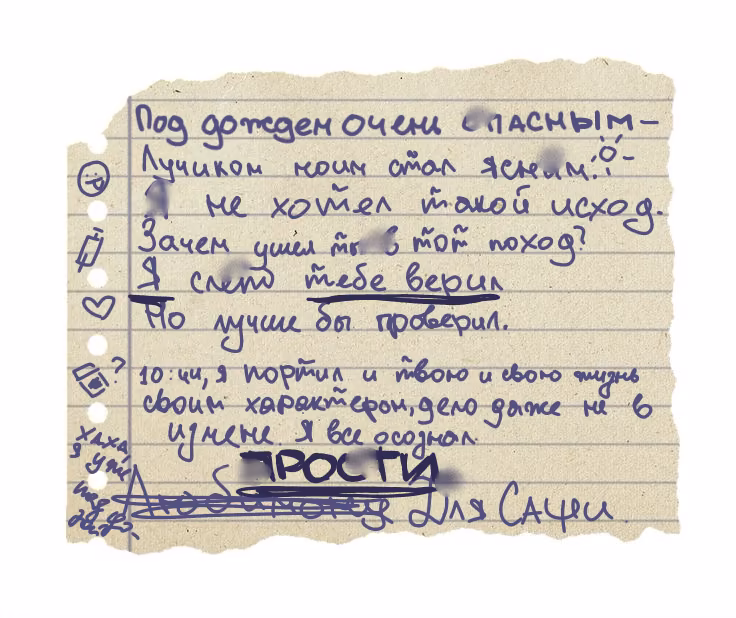 Под дождем очень опасным—
Лучиком моим стал ясным.
Я не хотел такой исход.
Зачем ушел ты в тот поход?
Я слепо тебе верил
Но лучше бы проверил.
?
10:44, я портил и твою и свою жизнь
своим характером, дело даже не в
измене. Я все осознал.
ХАХА,
я уже
ПРОСТИ
Любимому Для Саши.